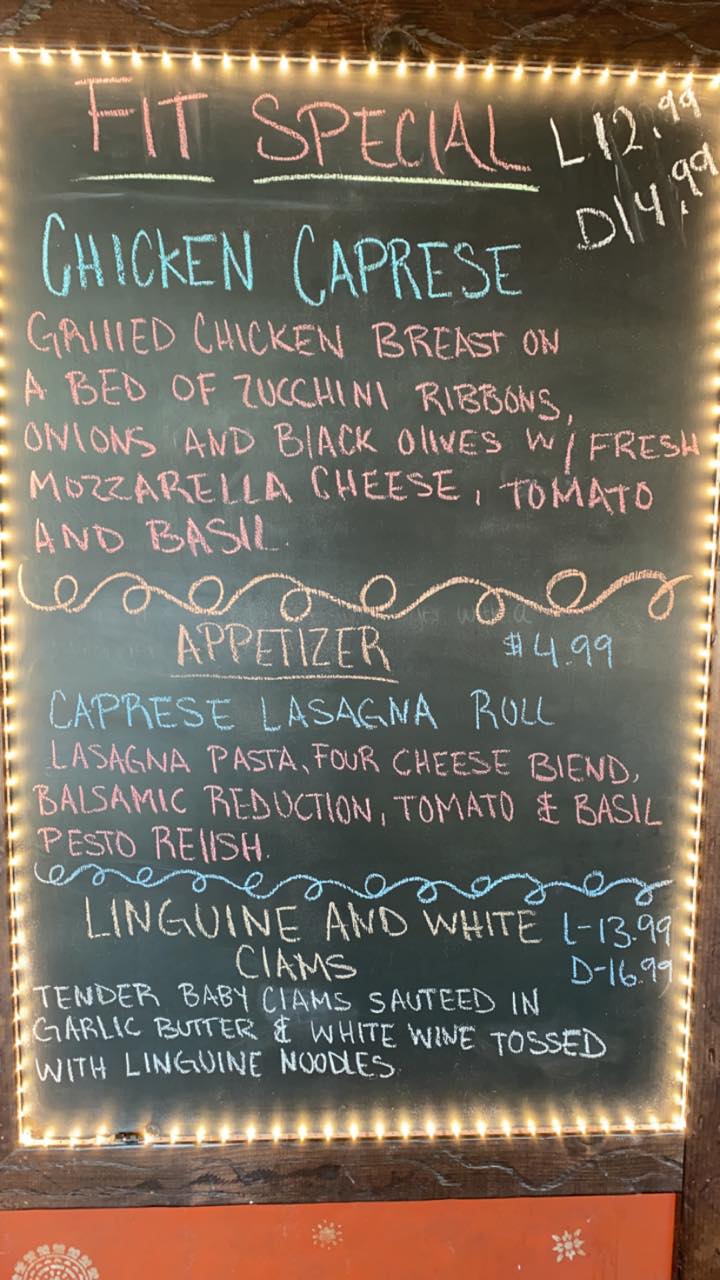 FIT SPECIAL L 12.99
D 14.99
CHICKEN CAPRESE
GRIllED CHICKEN BREAST ON
A BED OF ZUCCHINI RIBBONS,
ONIONS AND BlACK OlIVES W/ FRESH
MOZZARELLA CHEESE, TOMATO
AND BASIL
APPETIZER $4.99
CAPRESE LASAGNA ROLL
LASAGNA PASTA, FOUR CHEESE BlEND,
BALSAMIC REDUCTION, TOMATO & BASIL
PESTO RElISH.
LINGUINE AND WHITE L-13.99
ClAMS D-16.99
TENDER BABY ClAMS SAUTEED IN
GARLIC BUTTER & WHITE WINE TOSSED
WITH LINGUINE NOODLES